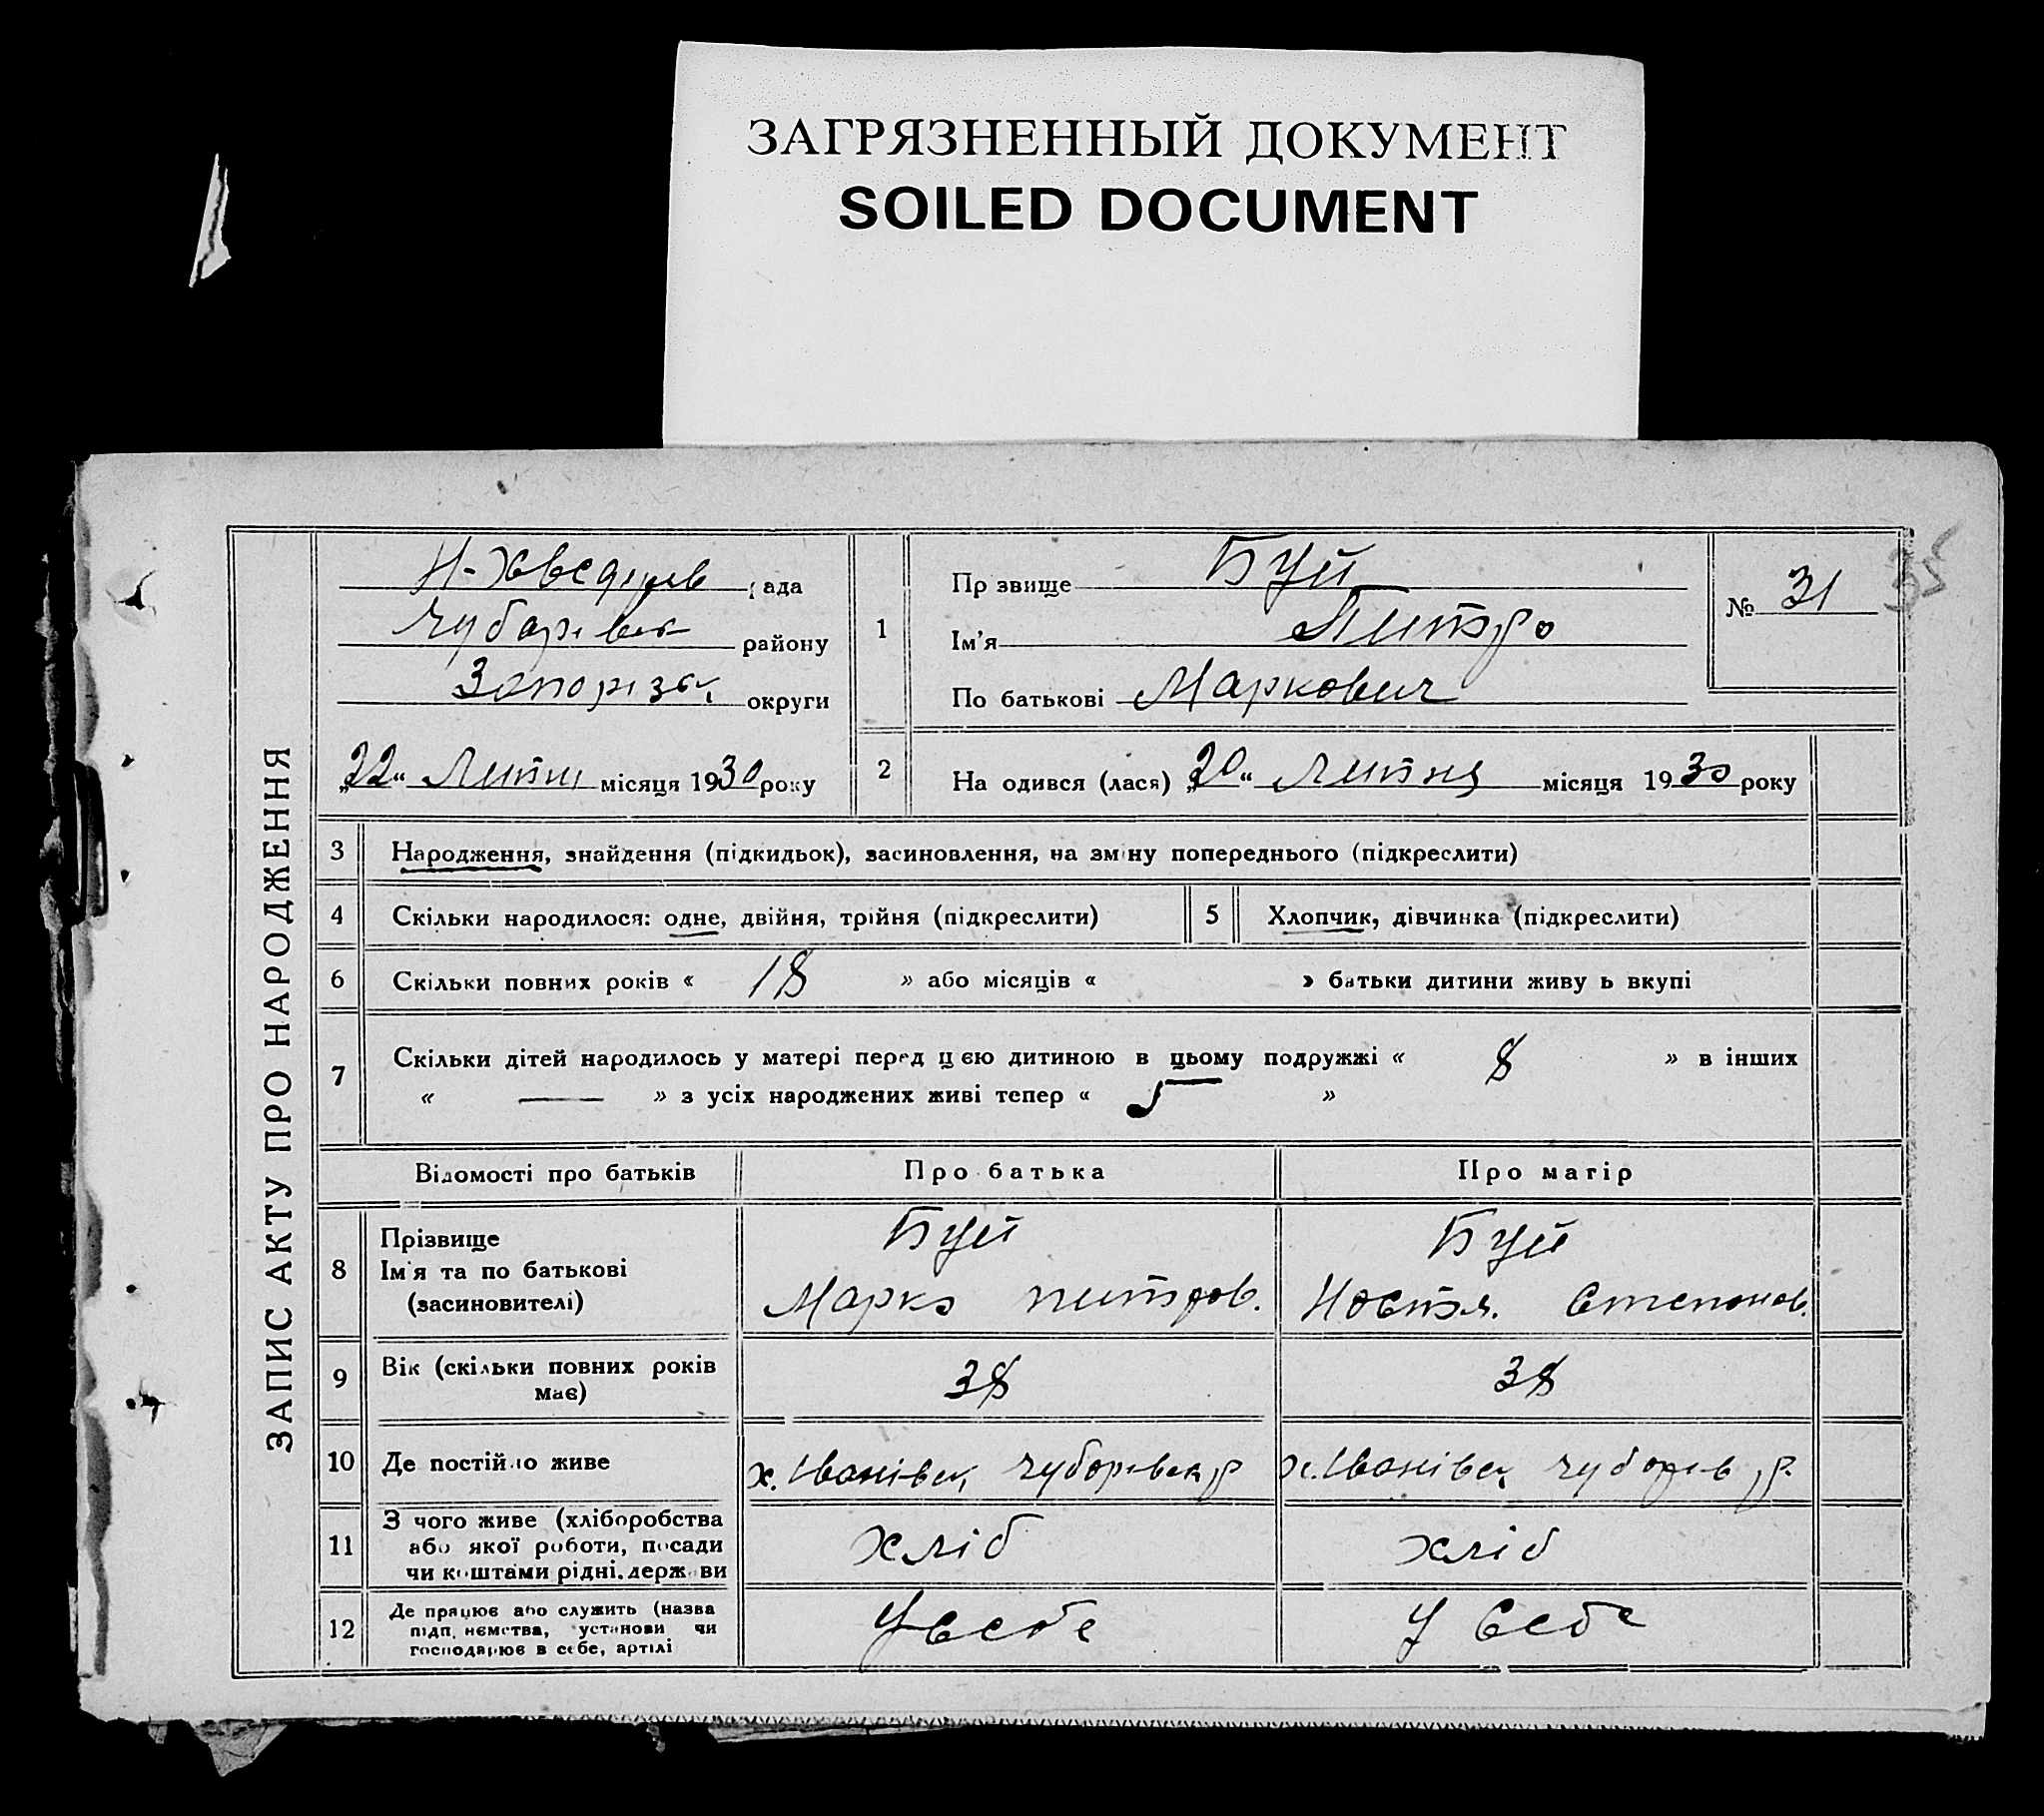 ЗАГРЯЗНЕННЫЙ ДОКУМЕНТ
SOILED DOCUMENT
ЗАПИС АКТУ ПРО НАРОДЖЕННЯ
рада
Чубарівськ району
Запорізьк округи
„22“ Литня місяця 1930 року
1
Прізвище Буй
Ім'я Питро
По батькові Маркович
№ 31
35
2 На одився (лася) „20“ Литня місяця 1930 року
3 Народження, знайдення (підкидьок), засиновлення, на зміну попереднього (підкреслити)
4 Скільки народилося: одне, двійня, трійня (підкреслити)
5 Хлопчик, дівчинка (підкреслити)
6 Скільки повних років « 18 » або місяців « » батьки дитини живу ь вкупі
7 Скільки дітей народилось у матері перед цією дитиною в цьому подружжі « 8 » в інших
« — » з усіх народжених живі тепер « 5 »
Відомості про батьків
Про батька
Про матір
8
Прізвище
Ім'я та по батькові
(засиновителі)
Буй
Марко питров.
Буй
Ностя. Степонов.
9 Вік (скільки повних років
має)
38
38
10 Де постійно живе
х. Іванівськ Чуборівськ р
х. Іванівськ Чубарів р.
11
З чого живе (хліборобства
або якої роботи, посади
чи коштами рідні, держави
хліб
хліб
12
Де працює або служить (назва
підп. нємства, установи чи
господарює в себе, артілі
У себе
У себе